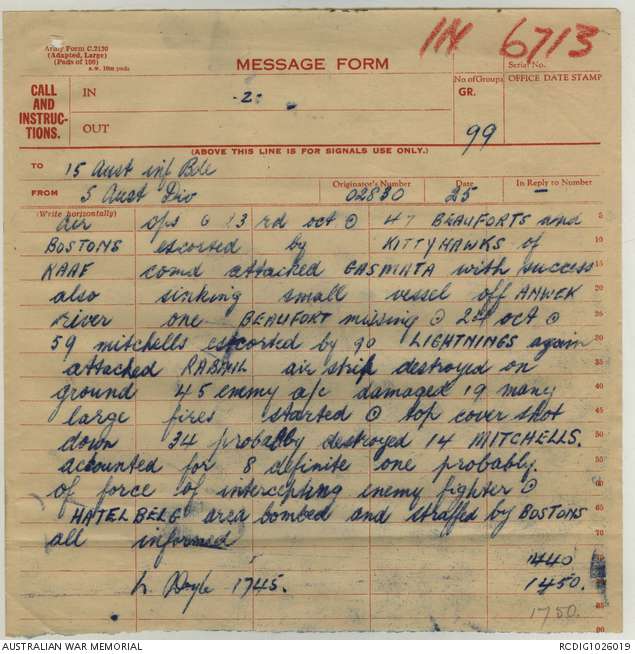 IN 6713
Army Form C.2130
(Adapted, Large)
(Pads of 100)
MESSAGE FORM
Serial No.
CALL
AND
INSTRUC-
TIONS.
IN
2
No of Groups
GR.
OFFICE DATE STAMP
OUT
99
(ABOVE THIS LINE IS FOR SIGNALS USE ONLY.)
TO 15 Aust inf Bde
FROM 5 Aust Div
Originator's Number
02830
Date
25
In Reply to Number
—
(Write horizontally)
Air ops 23 rd oct 47 BEAUFORTS and
BOSTONS escorted by KITTYHAWKS of
RAAF comd attacked GASMATA with success
also sinking small vessel off ANWEK
river one BEAUFORT missing 24 oct
59 mitchells escorted by 90 LIGHTNINGS again
attacked RABAUL air strip destroyed on
ground 45 enemy a/c damaged 19 many
large fires started top cover shot
down 34 probably destroyed 14 MITCHELLS.
accounted for 8 definite one probably.
of force of intercepting enemy fighter
HATELBERG area bombed and straffed by BOSTONS
all informed
1440
L. Doyle 1745. 1450.
1750.
5
10
15
20
25
30
35
40
45
50
55
60
65
AUSTRALIAN WAR MEMORIAL
RCDIG1026019